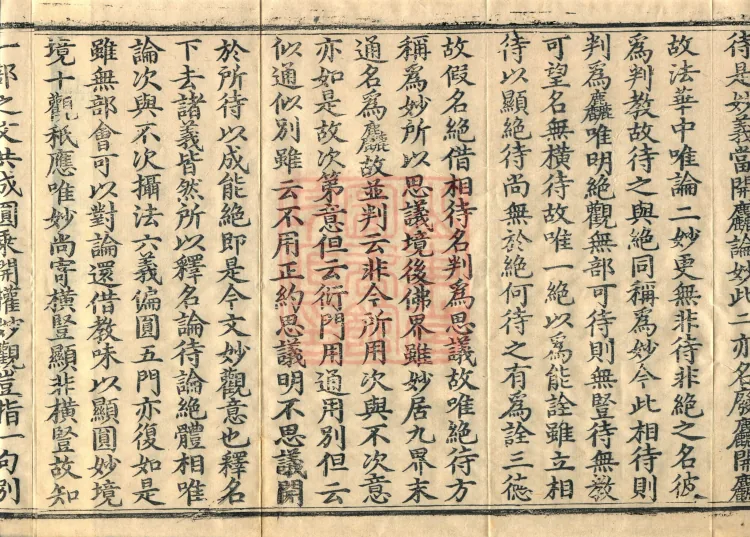 待是妙義當開麤論妙此二亦名廢麤開麤
故法華中唯論二妙更無非待非絶之名彼
爲判教故待之與絶同稱爲妙今此相待則
判爲麤唯明絶觀無部可待則無竪待無教
可望名無橫待故唯一絶以爲能詮雖立相
待以顯絶待尚無於絶何待之有爲詮三德
故假名絶借相待名判爲思議故唯絶待方
稱爲妙所以思議境後佛界雖妙居九界末
通名爲麤故並判云非今所用次與不次意
亦如是故次第意但云衍門用通用別但云
似通似別雖云不用正約思議明不思議開
於所待以成能絶即是今文妙觀意也釋名
下去諸義皆然所以釋名論待論絶體相唯
論次與不次攝法六義徧圓五門亦復如是
雖無部會可以對論還借教味以顯圓妙境
境十觀秖應唯妙尚寄橫豎顯非橫豎故知
一部之文共成圓乘開權妙觀豈指一句別